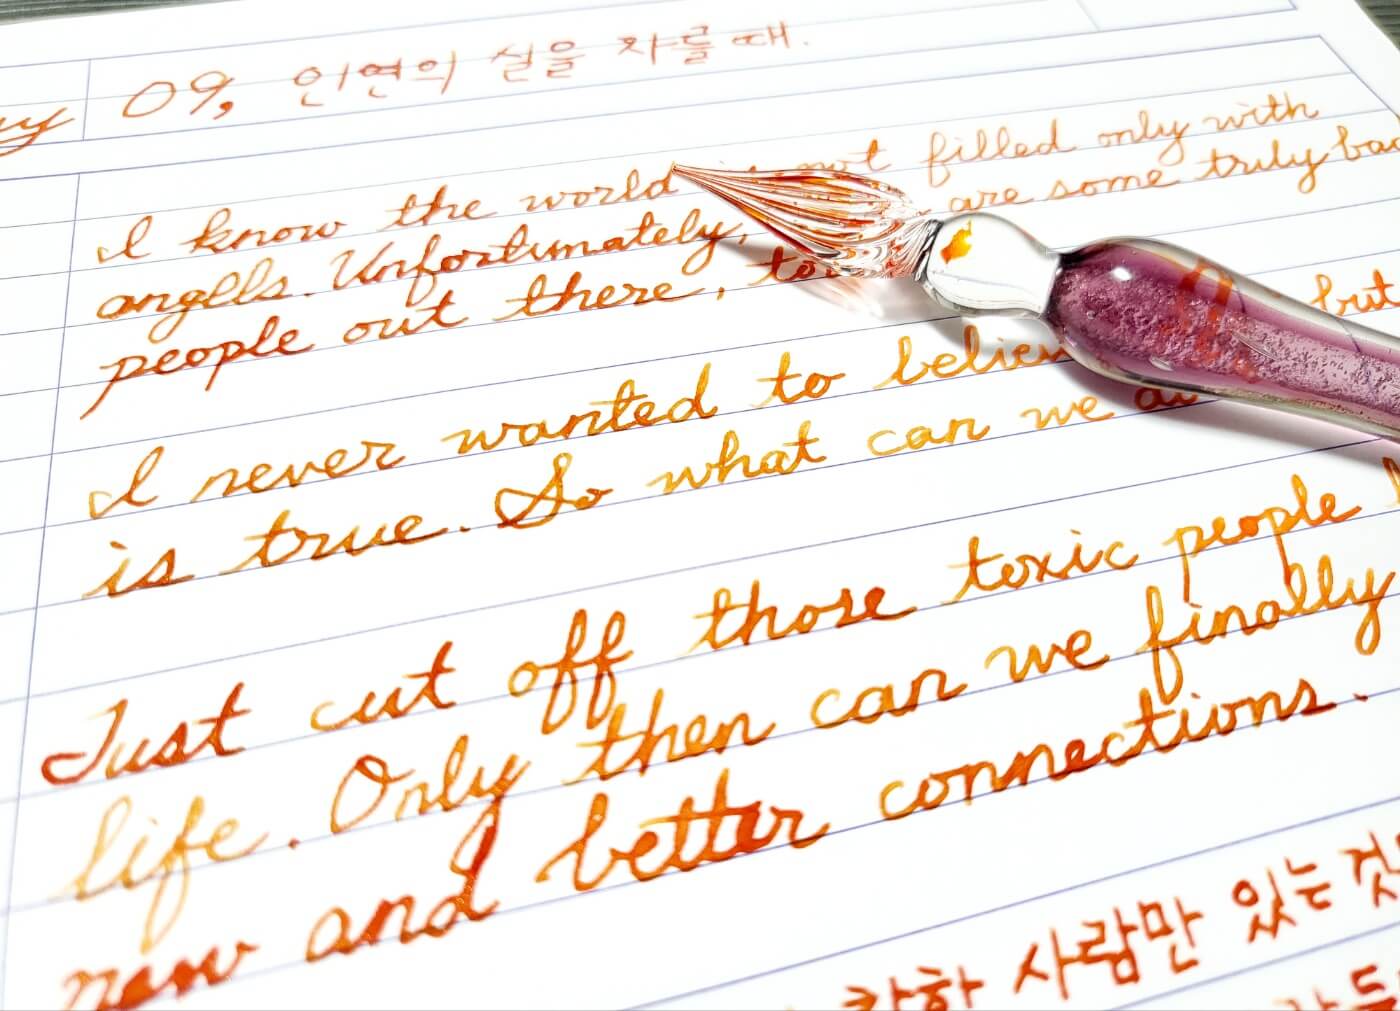 09, 인연의 실을 자를 때.
I know the world not filled only with
angells. Unfortunately, are some truly
people out there,
but
I never wanted to
is true. So what can we
Just cut off those toxic people
life. Only then can we finally
new and better connections.
사람만 있는